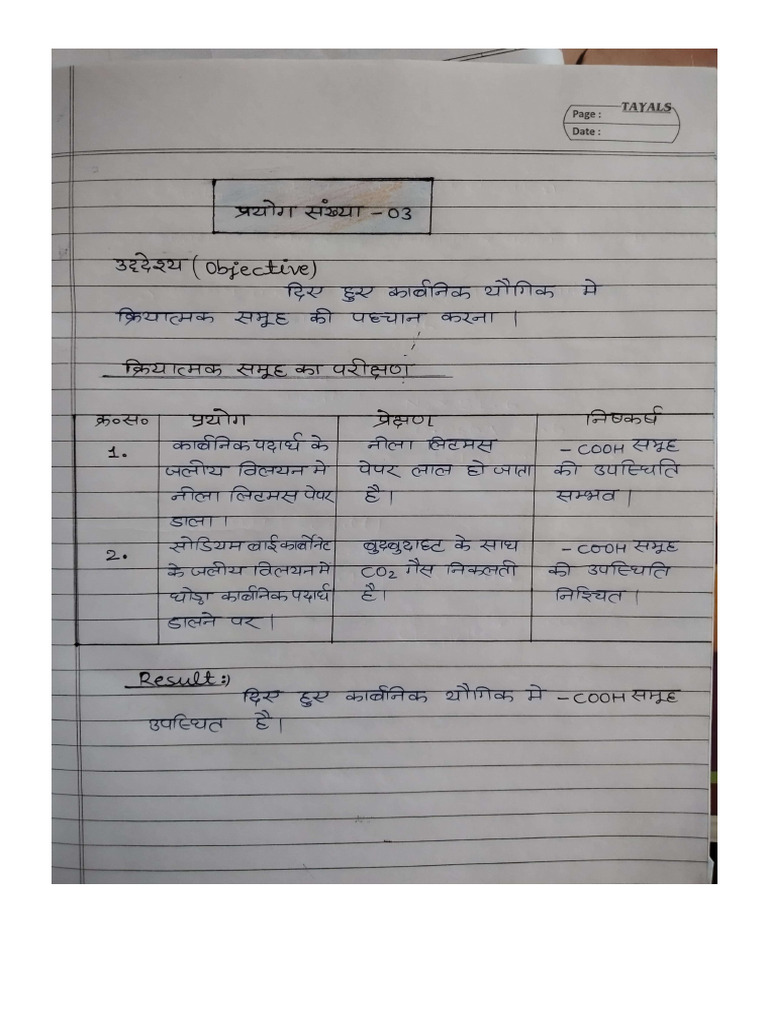 TAYALS
Page :
Date :
प्रयोग संख्या - 03
उद्देश्य ( Objective)
दिए हुए कार्बनिक यौगिक मे
क्रियात्मक समूह की पहचान करना ।
क्रियात्मक समूह का परीक्षण
क्र०स० प्रयोग प्रेक्षण निष्कर्ष
1. कार्बनिक पदार्थ के नीला लिटमस - COOH समूह
जलीय विलयन मे पेपर लाल हो जाता की उपस्थिति
नीला लिटमस पेपर है। सम्भव ।
डाला ।
2. सोडियम बाईकार्बोनेट बुदबुदाहट के साथ - COOH समूह
के जलीय विलयन मे CO2 गैस निकलती की उपस्थिति
थोड़ा कार्बनिक पदार्थ है। निश्चित ।
डालने पर ।
Result:)
दिए हुए कार्बनिक यौगिक मे - COOH समूह
उपस्थित है।